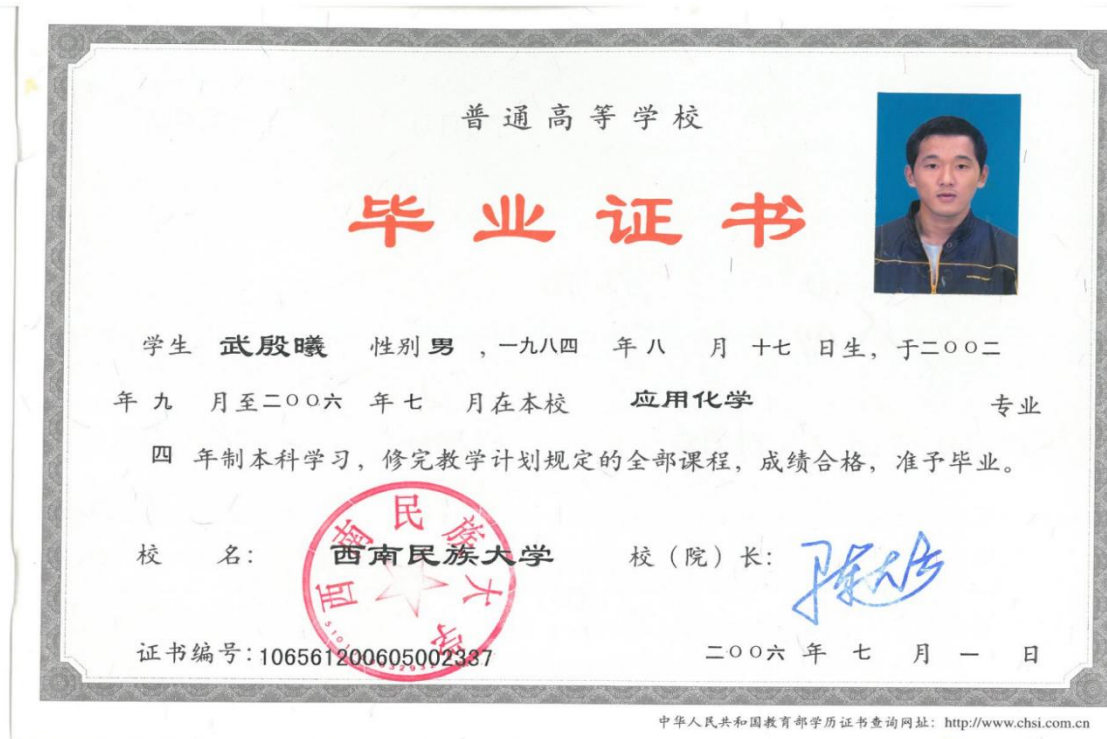 普通高等学校
毕业证书
学生 武殷曦 性别 男 ，一九八四 年 八 月 十七 日生，于二〇〇二
年 九 月至二〇〇六 年 七 月在本校 应用化学 专业
四 年制本科学习，修完教学计划规定的全部课程，成绩合格，准予毕业。
西南民族大学
校 名： 西南民族大学 校（院）长：
证书编号：106561200605002337 二〇〇六 年 七 月 一 日
中华人民共和国教育部学历证书查询网址：http://www.chsi.com.cn